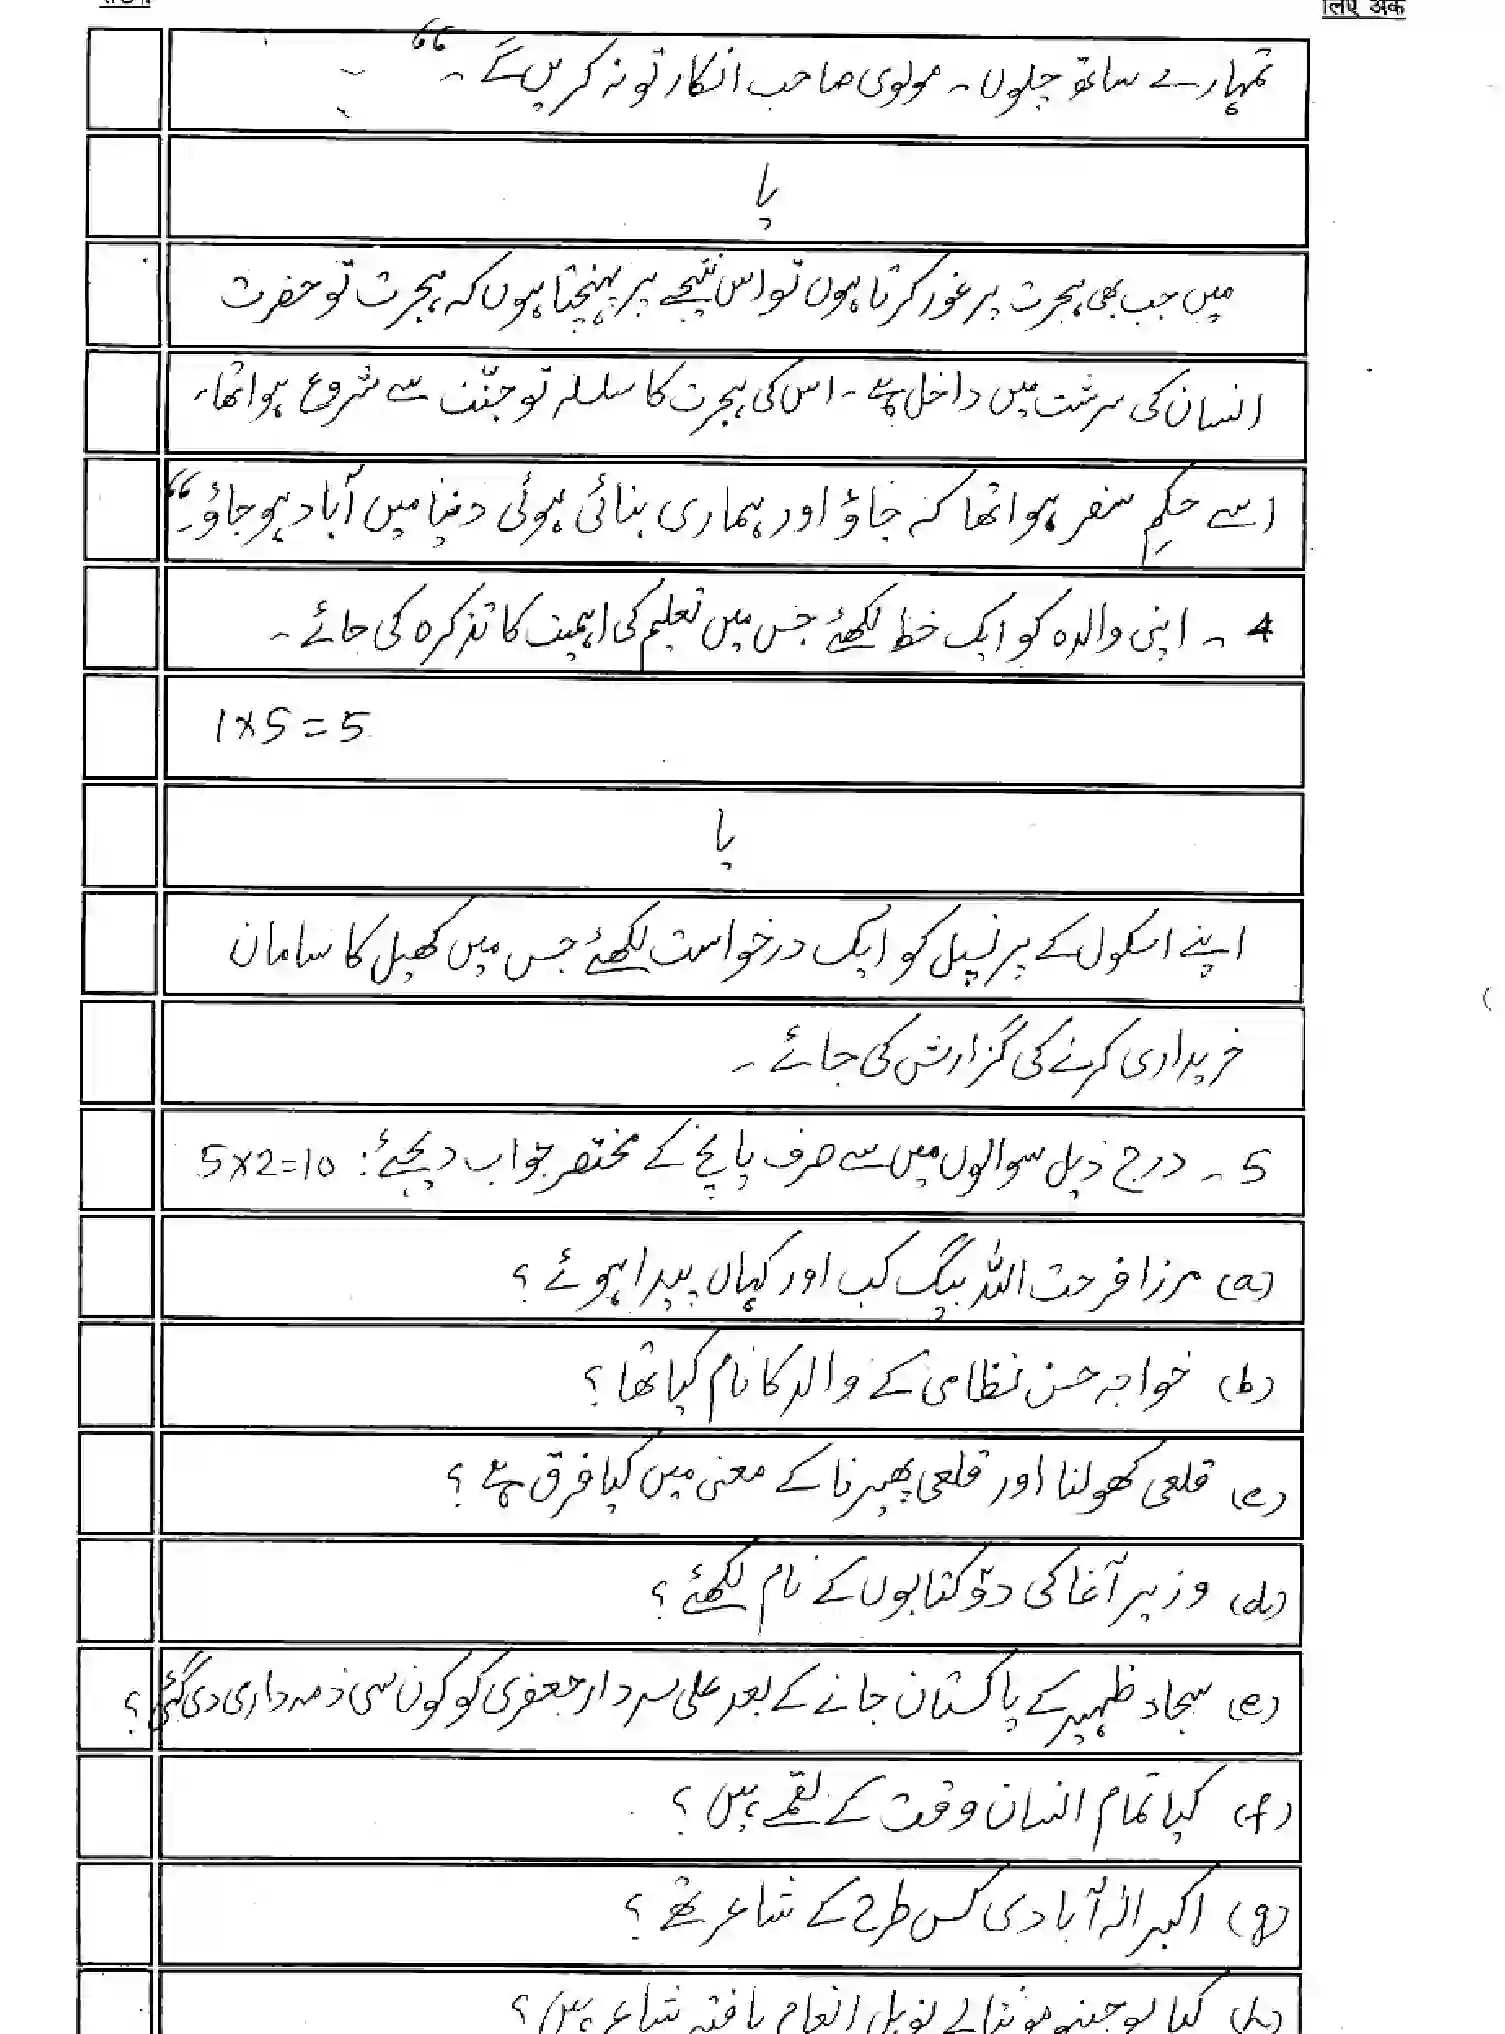 लिए अंक
تمہارے ساتھ چلوں ۔ مولوی صاحب انکار تو نہ کریں گے ۔“
یا
میں جب بھی ہجرت پر غور کرتا ہوں تو اس نتیجے پر پہنچتا ہوں کہ ہجرت تو حضرت
انسان کی سرشت میں داخل ہے ۔ اس کی ہجرت کا سلسلہ تو جنّت سے شروع ہوا تھا ۔
اسے حکمِ سفر ہوا تھا کہ جاؤ اور ہماری بنائی ہوئی دنیا میں آباد ہو جاؤ ۔“
4 ۔ اپنی والدہ کو ایک خط لکھئے جس میں تعلیم کی اہمیت کا تذکرہ کی جائے ۔
1×5=5
یا
اپنے اسکول کے پرنسپل کو ایک درخواست لکھئے جس میں کھیل کا سامان
خریداری کرنے کی گزارش کی جائے ۔
5 ۔ درج ذیل سوالوں میں سے صرف پانچ کے مختصر جواب دیجئے : 5×2=10
(a) مرزا فرحت اللہ بیگ کب اور کہاں پیدا ہوئے ؟
(b) خواجہ حسن نظامی کے والد کا نام کیا تھا ؟
(c) قلعی کھولنا اور قلعی پھیرنا کے معنی میں کیا فرق ہے ؟
(d) وزیر آغا کی دو کتابوں کے نام لکھئے ؟
(e) سجاد ظہیر کے پاکستان جانے کے بعد علی سردار جعفری کو کون سی ذمہ داری دی گئی ؟
(f) کیا تمام انسان وقت کے لقمے ہیں ؟
(g) اکبر الہ آبادی کس طرح کے شاعر تھے ؟
(h) کیا یوجینو مونتالے نوبل انعام یافتہ شاعر ہیں ؟